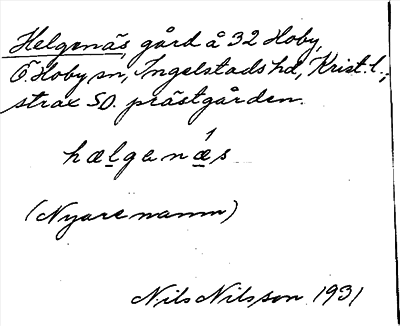 Helgenäs, gård å 32 Hoby,
Ö. Hoby sn, Ingelstads hd, Krist. l.,
strax SO. prästgården.
hælgenæ´s
(Nyare namn)
Nils Nilsson 1931